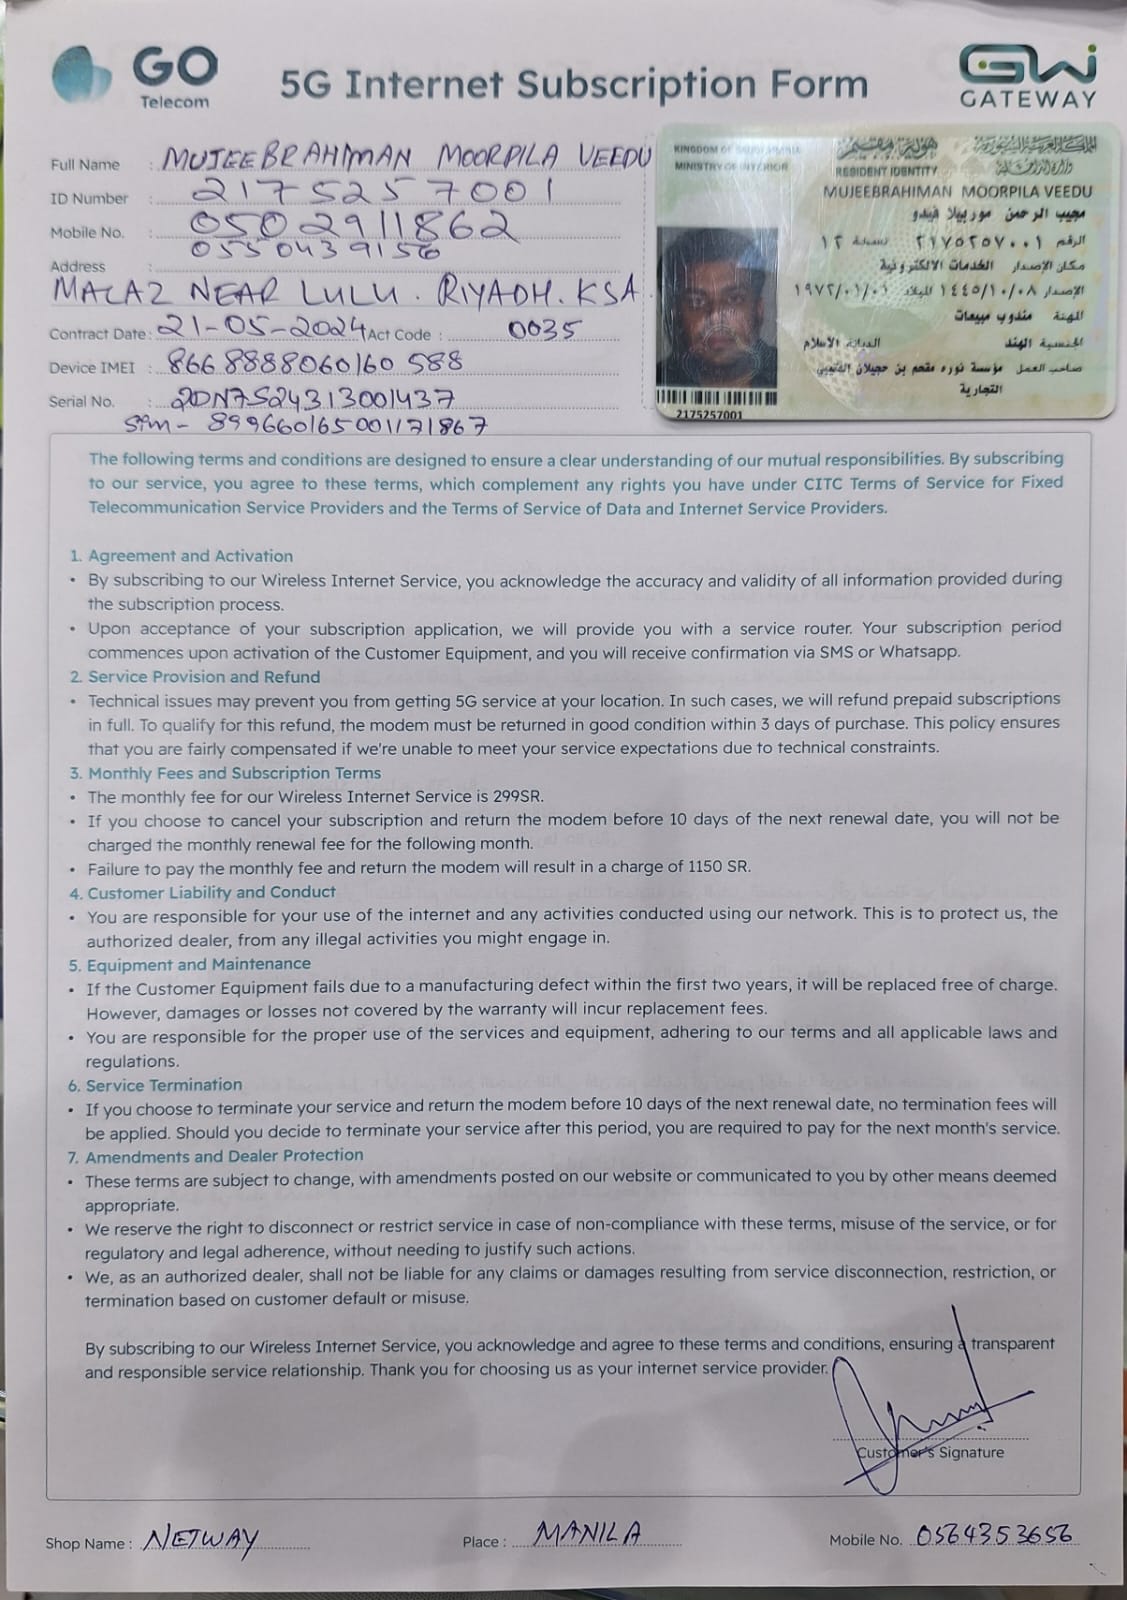 GO
Telecom
5G Internet Subscription Form
GATEWAY
Full Name : MUJEEBRAHMAN MOORPILA VEEDU
ID Number : 2175257001
Mobile No. : 0502911862
0550439156
Address :
MALAZ NEAR LULU. RIYADH. KSA
Contract Date : 21-05-2024 Act Code : 0035
Device IMEI : 8668888060160588
Serial No. : 2DN7S24313001437
Sim - 899660165001171867
KINGDOM OF SAUDI ARABIA
MINISTRY OF INTERIOR
RESIDENT IDENTITY هوية مقيم
MUJEEBRAHIMAN MOORPILA VEEDU
مجيب الرحمن موربيلا فيدو
الرقم ٢١٧٥٢٥٧٠٠١ نسخة ١٢
مكان الإصدار الخدمات الالكترونية
الإصدار ١٤٤٥/١٠/٠٨ الميلاد ١٩٧٢/٠١/٠١
المهنة مندوب مبيعات
الجنسية الهند الديانة الاسلام
صاحب العمل مؤسسة نوره مقحم بن حجيلان العتيبي
التجارية
2175257001
The following terms and conditions are designed to ensure a clear understanding of our mutual responsibilities. By subscribing
to our service, you agree to these terms, which complement any rights you have under CITC Terms of Service for Fixed
Telecommunication Service Providers and the Terms of Service of Data and Internet Service Providers.
1. Agreement and Activation
• By subscribing to our Wireless Internet Service, you acknowledge the accuracy and validity of all information provided during
the subscription process.
• Upon acceptance of your subscription application, we will provide you with a service router. Your subscription period
commences upon activation of the Customer Equipment, and you will receive confirmation via SMS or Whatsapp.
2. Service Provision and Refund
• Technical issues may prevent you from getting 5G service at your location. In such cases, we will refund prepaid subscriptions
in full. To qualify for this refund, the modem must be returned in good condition within 3 days of purchase. This policy ensures
that you are fairly compensated if we're unable to meet your service expectations due to technical constraints.
3. Monthly Fees and Subscription Terms
• The monthly fee for our Wireless Internet Service is 299SR.
• If you choose to cancel your subscription and return the modem before 10 days of the next renewal date, you will not be
charged the monthly renewal fee for the following month.
• Failure to pay the monthly fee and return the modem will result in a charge of 1150 SR.
4. Customer Liability and Conduct
• You are responsible for your use of the internet and any activities conducted using our network. This is to protect us, the
authorized dealer, from any illegal activities you might engage in.
5. Equipment and Maintenance
• If the Customer Equipment fails due to a manufacturing defect within the first two years, it will be replaced free of charge.
However, damages or losses not covered by the warranty will incur replacement fees.
• You are responsible for the proper use of the services and equipment, adhering to our terms and all applicable laws and
regulations.
6. Service Termination
• If you choose to terminate your service and return the modem before 10 days of the next renewal date, no termination fees will
be applied. Should you decide to terminate your service after this period, you are required to pay for the next month's service.
7. Amendments and Dealer Protection
• These terms are subject to change, with amendments posted on our website or communicated to you by other means deemed
appropriate.
• We reserve the right to disconnect or restrict service in case of non-compliance with these terms, misuse of the service, or for
regulatory and legal adherence, without needing to justify such actions.
• We, as an authorized dealer, shall not be liable for any claims or damages resulting from service disconnection, restriction, or
termination based on customer default or misuse.
By subscribing to our Wireless Internet Service, you acknowledge and agree to these terms and conditions, ensuring a transparent
and responsible service relationship. Thank you for choosing us as your internet service provider.
Customer's Signature
Shop Name : NETWAY Place : MANILA Mobile No. 0564353656